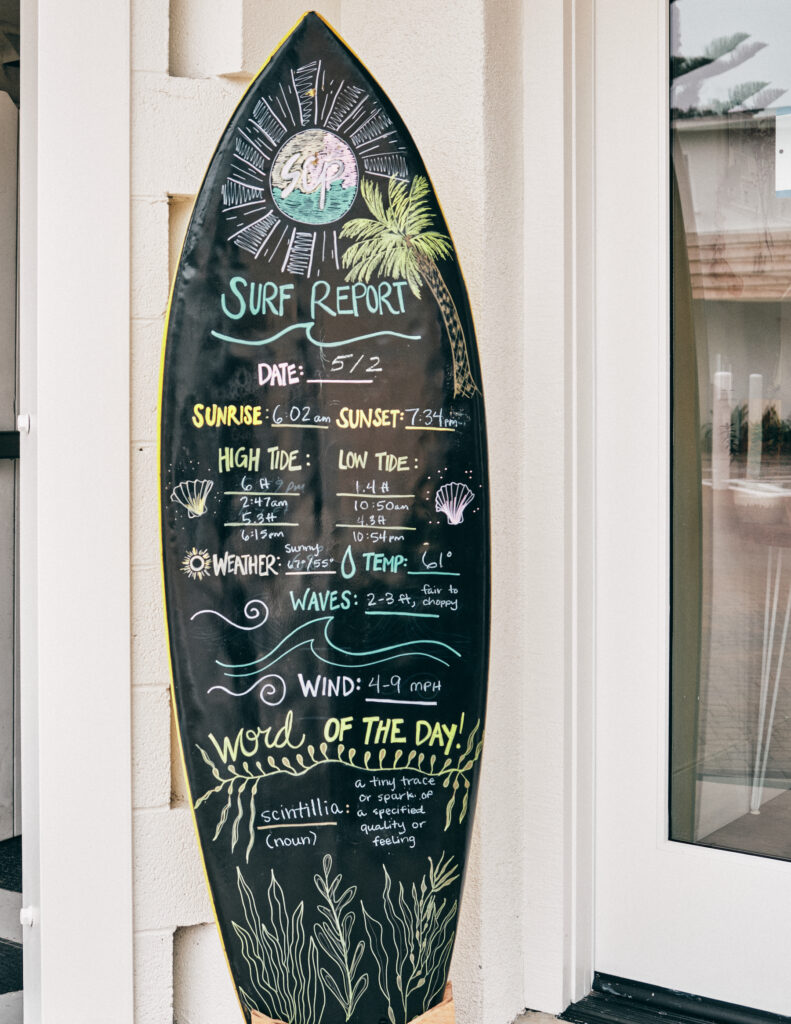 SUP
SURF REPORT
DATE: 5/2
SUNRISE: 6:02 am SUNSET: 7:34 pm
HIGH TIDE: LOW TIDE:
6 ft 1.4 ft
2:47am 10:50am
5.3 ft 4.3 ft
6:15pm 10:54pm
Sunny
WEATHER: 67°/55° TEMP: 61°
WAVES: 2-3 ft, fair to
choppy
WIND: 4-9 MPH
Word OF THE DAY!
a tiny trace
or spark of
scintillia: a specified
quality or
(noun) feeling